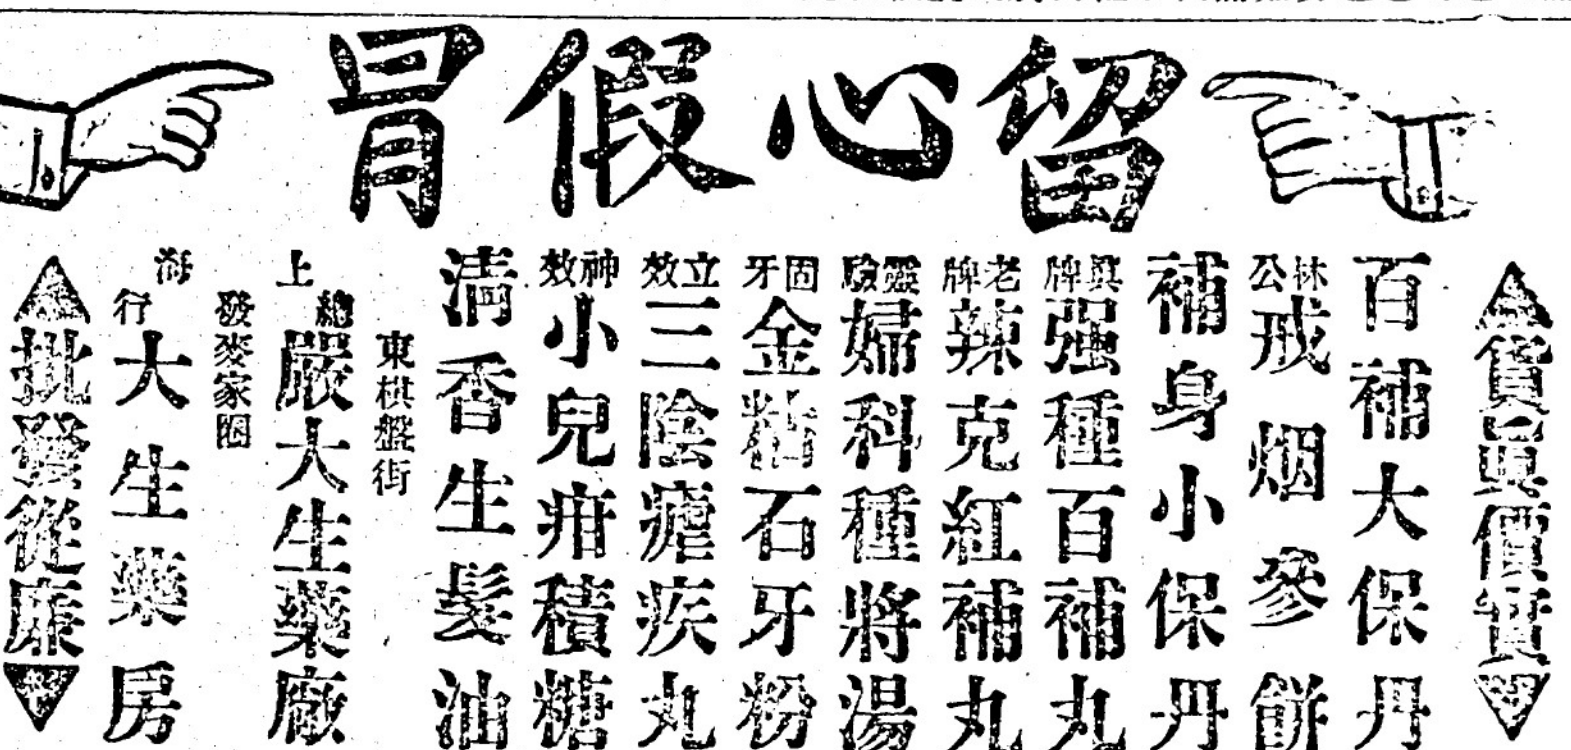 留心假冒
貨真價實
百補大保丹
林公戒烟參餅
補身小保丹
真牌强種百補丸
老牌辣克紅補丸
靈驗婦科種將湯
固牙金粘石牙粉
立效三陰瘧疾丸
神效小兒疳積糖
清香生髮油
東棋盤街
上總嚴大生藥廠
發麥家圈
海行大生藥房
批發從廉